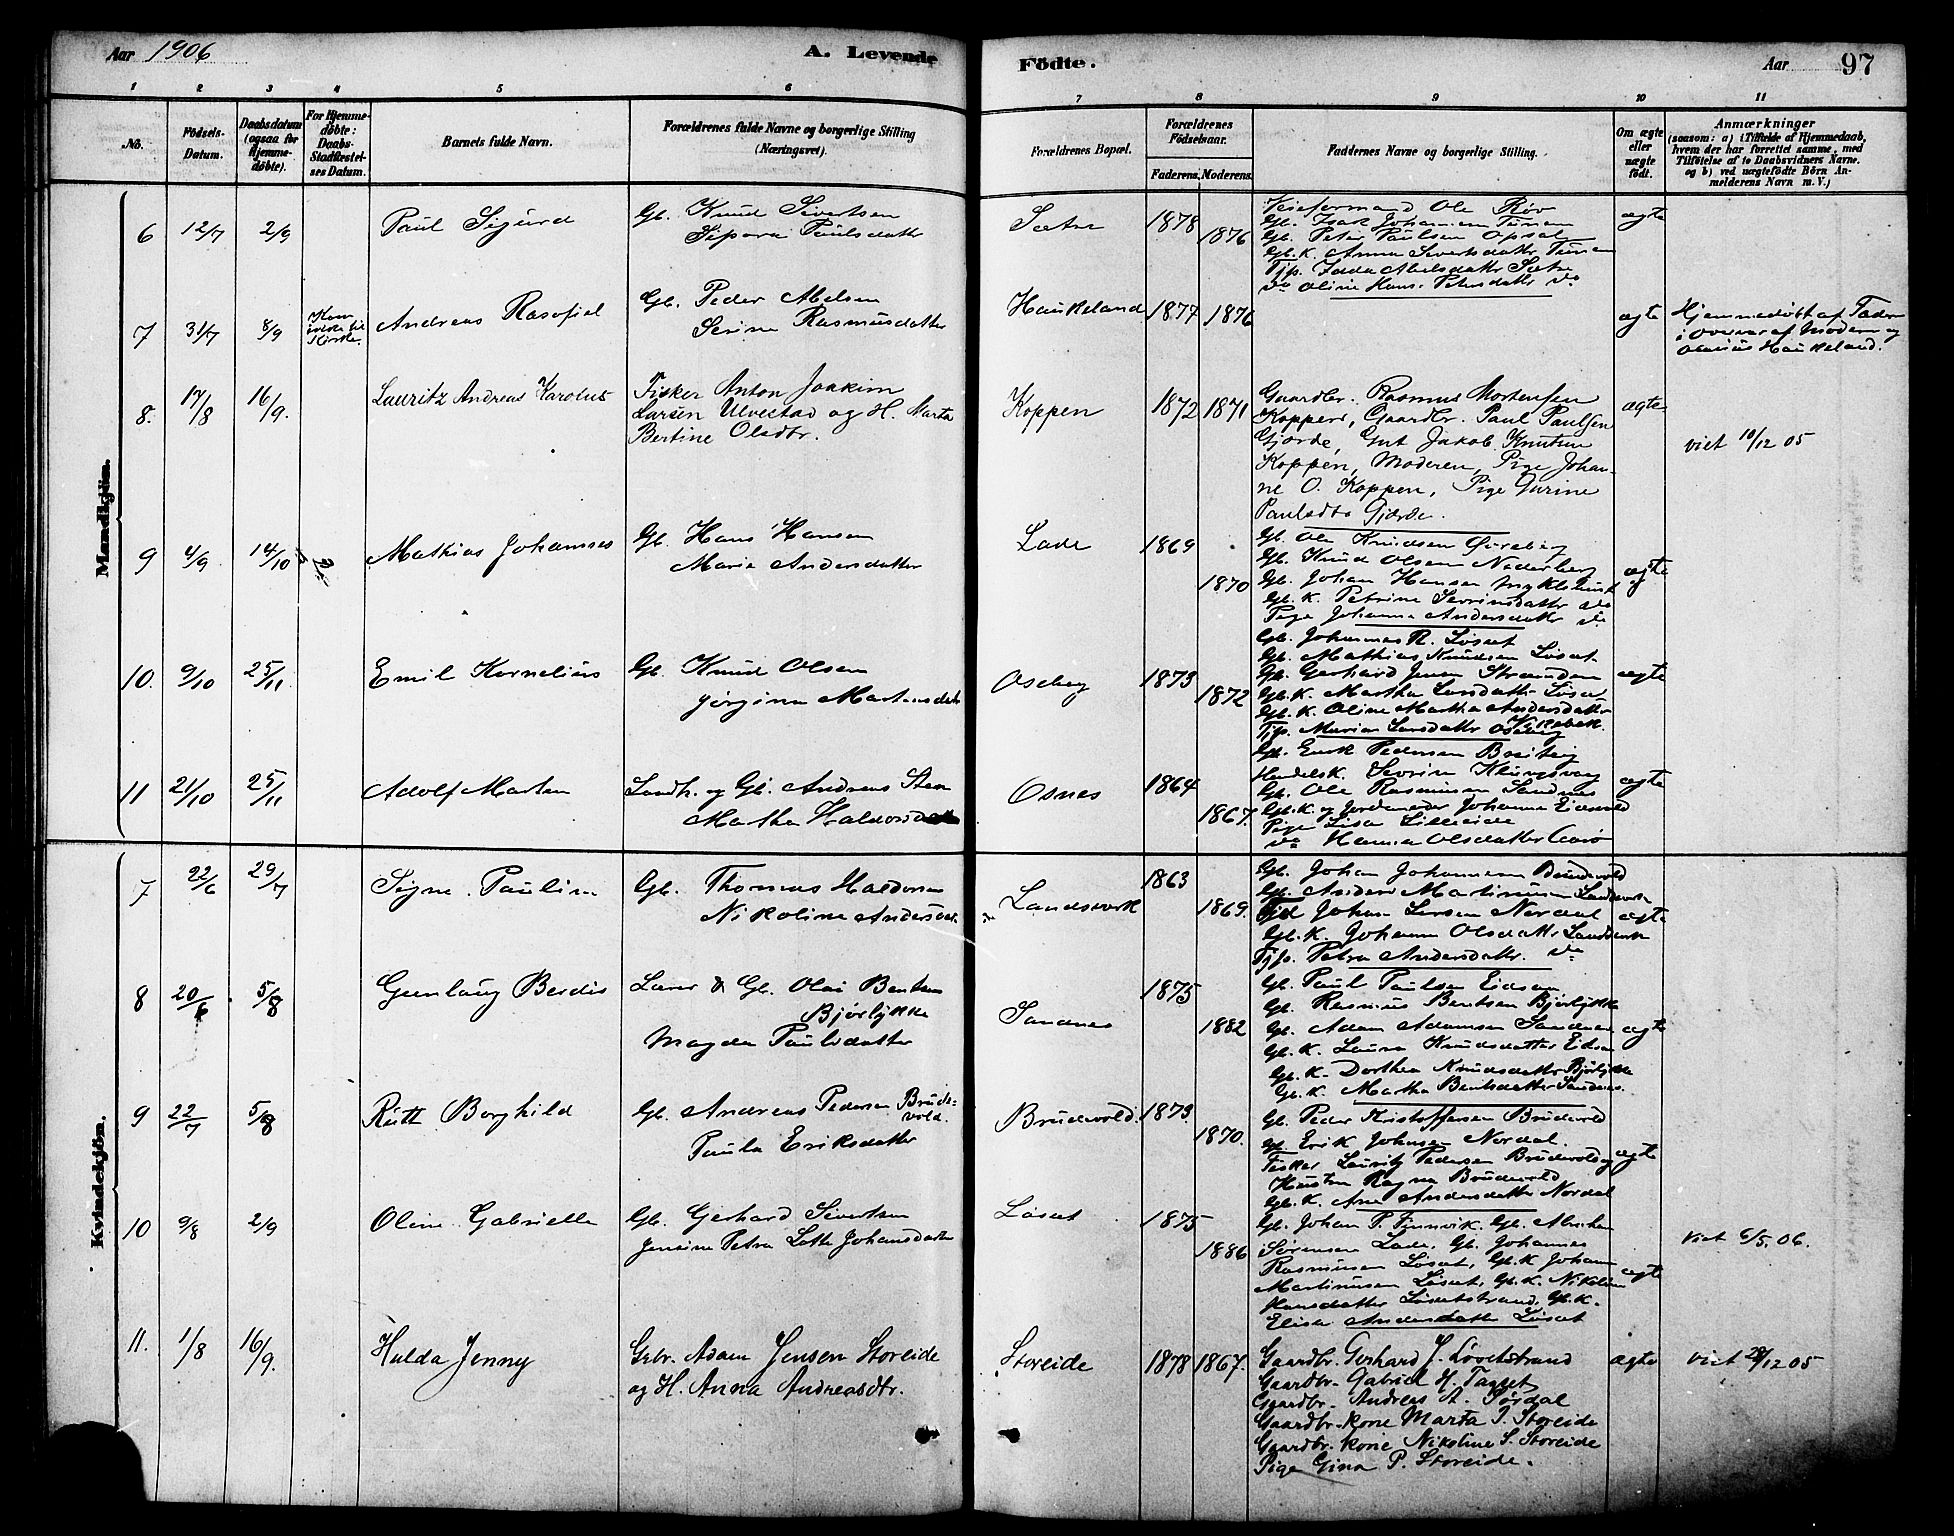 Aar 1906
A. Levende
Födte.
Aar
97
1 2 3 4 5 6 7 8 9 10 11
No.
Födsels-
Datum.
Daabsdatum
(ogsaa for
Hjemme-
döbte).
For Hjemme-
döbte:
Daabs-
Stadfæstel-
ses Datum.
Barnets fulde Navn.
Forældrenes fulde Navne og borgerlige Stilling
(Næringsvei).
Forældrenes Bopæl.
Forældrenes
Födselsaar.
Faderens. Moderens.
Faddernes Navne og borgerlige Stilling.
Om ægte
eller
uægte
födt.
Anmærkninger
(saasom: a) i Tilfælde af Hjemmedaab,
hvem der har forrettet samme, med
Tilföielse af to Daabsvidners Navne.
og b) ved uægtefödte Börn An-
melderens Navn m. V.)
Mandkjön.
6 12/7 2/9 Paul Sigurd
Gb. Knud Sivertsen
Sipora Paulsdatter
Sætre 1878 1876
Veieformand Ole Røv
Gb. Isak Johannesen
Gb. Peter Paulsen Opsal
Gb.K. Anna Sivertsdatter
Tjp. Abelsdatter Sætre
do Oline Hans Petersdatter do
ægte
7 31/7 8/9
Kirke.
Andreas Rasofiel
Gb. Peder Abelsen
Serine Rasmusdatter
Haukeland 1877 1876
ægte
Hjemmedøbt af Faderen
i overvær af Moderen og
Haukeland.
8. 17/8 16/9. Lauritz Andreas Karolus
Fisker Anton Joakim
Larsen Ulvestad og H. Marta
Bertine Olsdtr.
Koppen 1872 1871
Gaardbr. Rasmus Mortensen
Koppen, Gaardbr. Paul Paulsen
Gjørde, Gut Jakob Knutsen
Koppen, Moderen, Pige Johan-
ne O. Koppen, Pige Gurine
Paulsdtr Gjørde.
ægte
viet 10/12 05
9 4/9 14/10 Mathias Johannes
Gb. Hans Hansen
Marie Andersdatter
Lade 1869 1870
Gb. Ole Knudsen
Gb. Knud Olsen
Gb. Johan Hansen Myklebust
Gb.K. Petrine Severinsdatter do
Pige Johanna Andersdatter do
ægte
10. 9/10 25/11 Emil Kornelius
Gb. Knud Olsen
Jørgine Martinsdatter
Oseberg 1873 1872
Gb. Johannes R. Løset
Gb. Mathias Knudsen Løset
Gb. Gerhard Jensen Stranden
Gb.K. Martha Larsdatter Løset
Gb.K. Oline Martha Andersdatter
Vikebak.
Tjp. Marian Larsdatter
ægte
11 21/10 25/11 Adolf Marten
Landh. og Gb. Andreas Steen
Martha Haldorsdatter
Osnes 1864 1867.
Gb. Erik Pedersen
Handelsk. Severin Klungsvag
Gb. Ole Rasmussen Sandnes
Gb.K. og Jordemoder Johanna Eidsvold
Pige Lisa Lilleeide
do Hanna Olsdatter Aarø
ægte
Kvindekjön.
7 22/6 29/7 Signe Pauline
Gb. Thomas Haldorsen
Nikoline Andersdatter
Landsverk 1863 1869.
Gb. Johan Johannesen Brudevold
Gb. Anders Martinusen Landsverk
Johan Larsen Nordal
Gb.K. Johanna Olsdatter Landsverk
Tjp. Petra Andersdatter. do
ægte
8 20/6 5/8 Gunlaug Berdis
Lærer & Gb. Olai Bentsen
Bjørlykke
Magda Paulsdatter
Sandnes 1875 1882
Gb. Paul Paulsen Eidsaa
Gb. Rasmus Bentsen Bjørlykke
Gb. Adam Adamsen Sandnes
Gb.K. Laura Knudsdatter Eidsaa
Gb.K. Dorthea Knudsdatter Bjørlykke
Gb.K. Martha Bentsdatter Sandnes.
ægte
9 22/7 5/8 Rutt Borghild
Gb. Andreas Pedersen Brude-
vold.
Paula Eriksdatter
Brudevold. 1873. 1870.
Gb. Peder Kristoffersen Brudevold
Gb. Erik Johnsen Nordal.
Fisker Lauritz Pedersen Brudevold og
Hustru Ragna Brudevold
Gb.K. Ane Andersdatter Nordal
ægte
10 9/8 2/9 Oline Gabrielle
Gb. Gerhard Sivertsen
Jensine Petra Lotte Johansdatter
Løset 1875 1886
Gb. Johan P. Finnvik. Gb. Abraham
Sørensen Lade. Gb. Johannes
Rasmusen Løset, Gb.K Johan
Martinusen Løset, Gb.K. Nikoline
Hansdatter Løsetstrand, Gb.K.
Elisa Andersdatter Løset
ægte
viet 6/5. 06.
11. 1/8 16/9. Hulda Jenny
Gbr. Adam Jensen Storeide
og H. Anna Andreasdtr.
Storeide 1878 1867.
Gaardbr. Gerhard J. Løvetstrand
Gaardbr. Gabriel H.
Gaardbr. Andreas A. Sørdal
Gaardbr.kone Marta J. Storeide
Gaardbr. kone Nikoline S. Storeide
Pige Gina P. Storeide.
ægte
viet 28/12 05